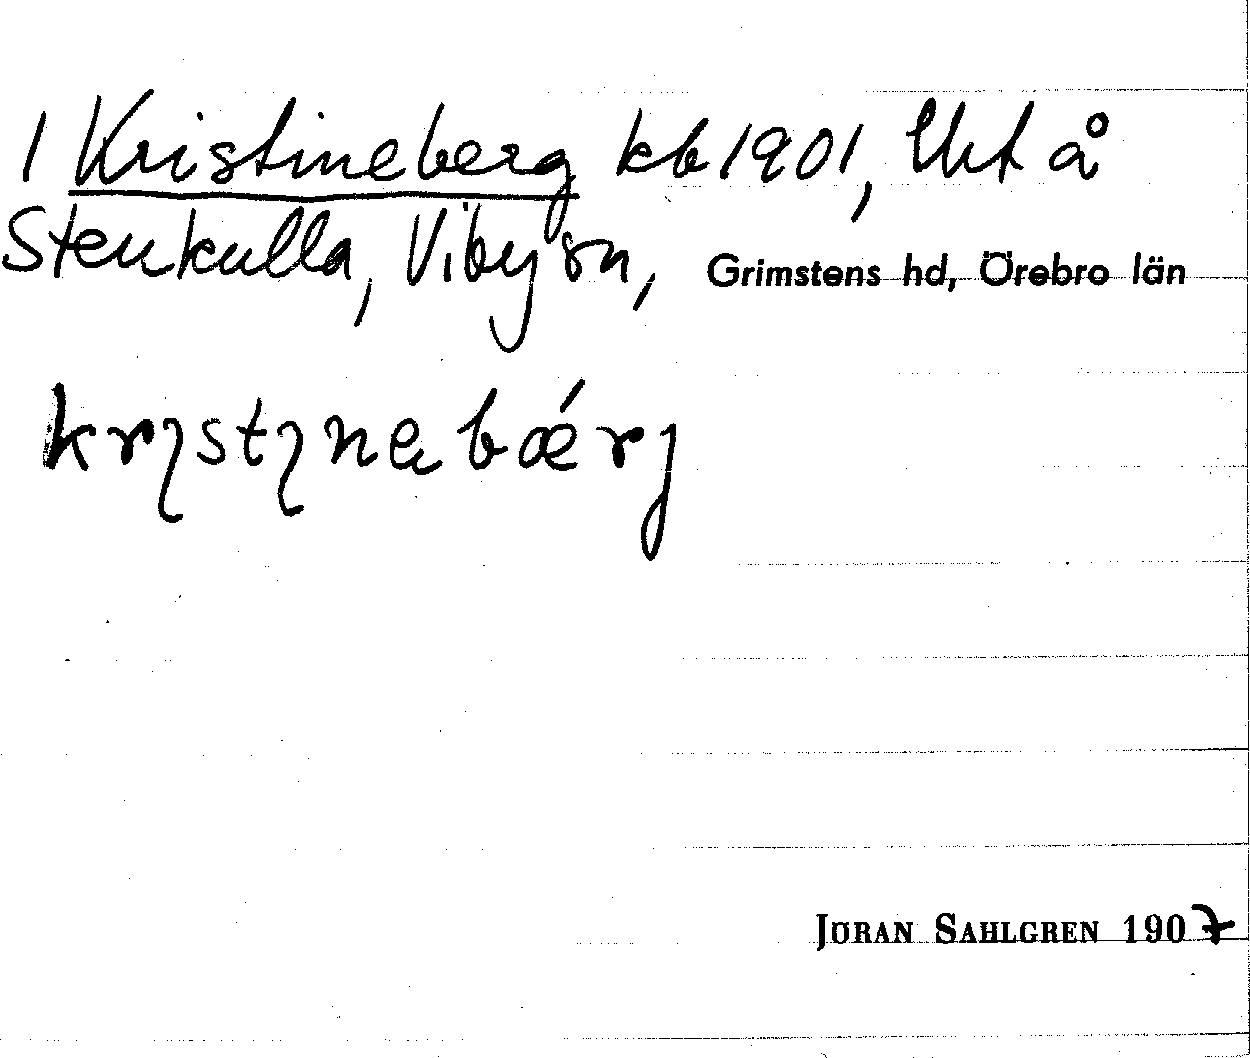 1 Kristineberg kb 1901, lht å
Stenkulla, Viby sn, Grimstens hd, Örebro län
krıstınabǽrj
JÖRAN SAHLGREN 1907